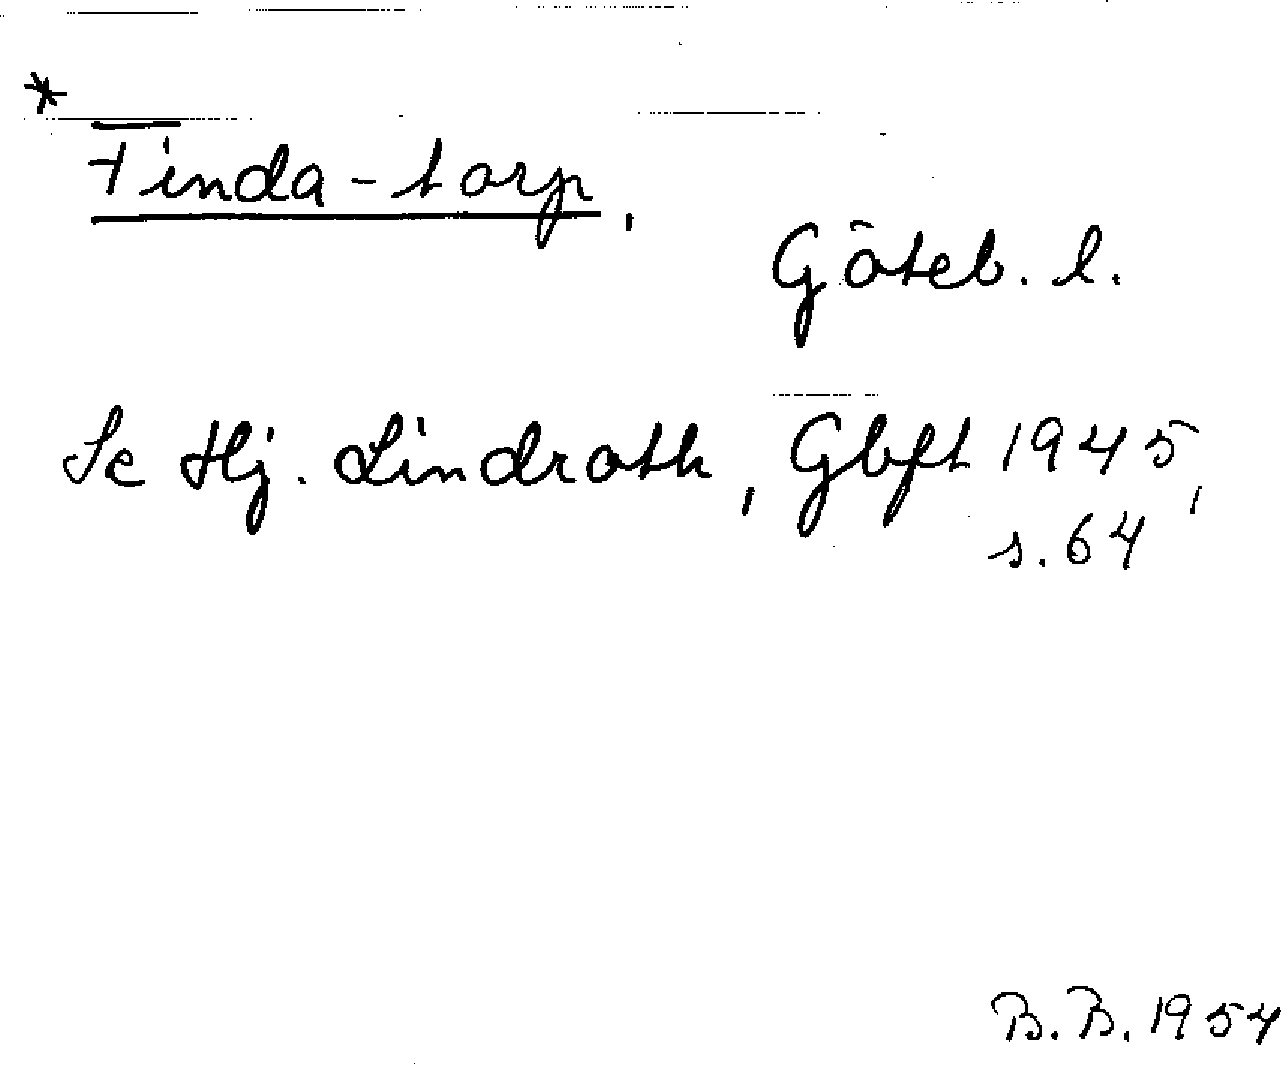 *
Finda-torp,
Göteb. l.
Se Hj. Lindroth, Gbft 1945,
s. 64
B.B. 1954